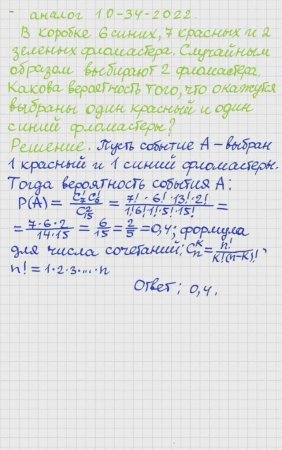 - аналог 10-34-2022.
В коробке 6 синих, 7 красных и 2
зеленых фломастера. Случайным
образом выбирают 2 фломастера.
Какова вероятность того, что окажутся
выбраны один красный и один
синий фломастеры?
Решение. Пусть событие А – выбран
1 красный и 1 синий фломастеры.
Тогда вероятность события А:
P(A) = C₇¹C₆¹/C₁₅² = 7!·6!·13!·2!/1!6!·1!·5!·15! =
= 7·6·2/14·15 = 6/15 = 2/5 = 0,4; формула
для числа сочетаний: Cₙᵏ = n!/k!(n-k)!,
n! = 1·2·3·...·n
Ответ: 0,4.